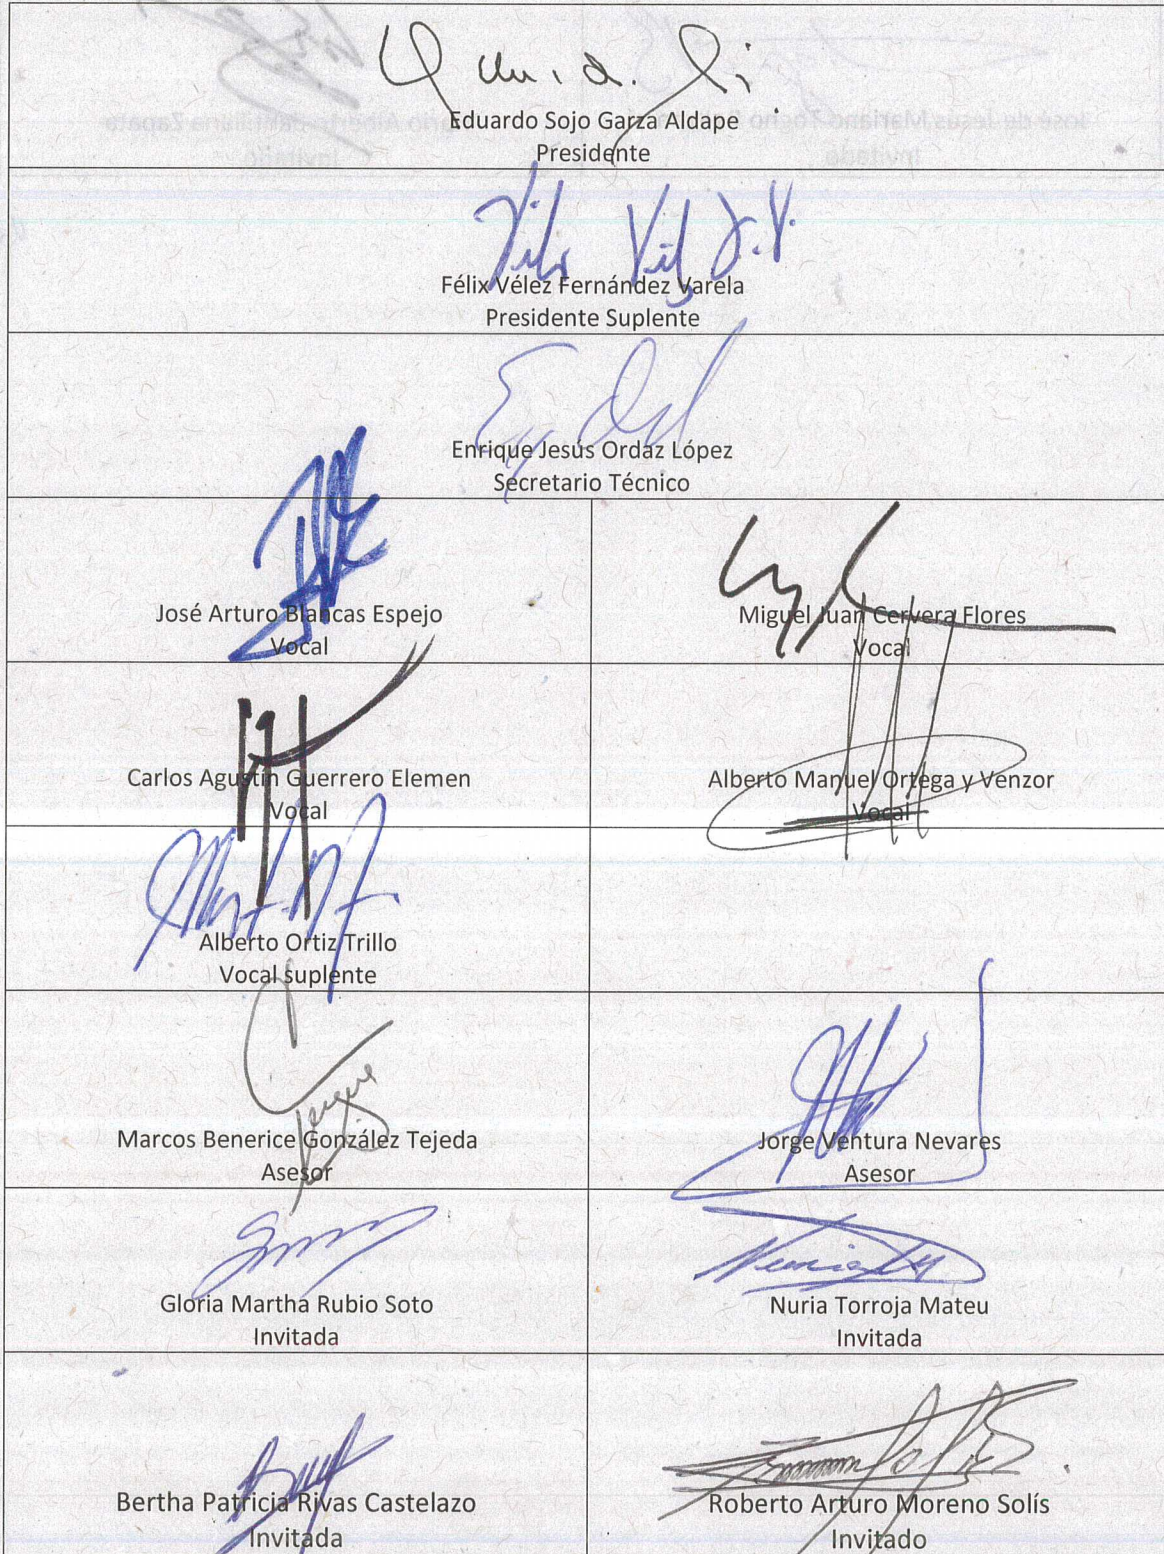 Eduardo Sojo Garza Aldape
Presidente
Félix Vélez Fernández Varela
Presidente Suplente
Enrique Jesús Ordaz López
Secretario Técnico
José Arturo Blancas Espejo
Vocal
Miguel Juan Cervera Flores
Vocal
Carlos Agustín Guerrero Elemen
Vocal
Alberto Manuel Ortega y Venzor
Vocal
Alberto Ortiz Trillo
Vocal suplente
Marcos Benerice González Tejeda
Asesor
Jorge Ventura Nevares
Asesor
Gloria Martha Rubio Soto
Invitada
Nuria Torroja Mateu
Invitada
Bertha Patricia Rivas Castelazo
Invitada
Roberto Arturo Moreno Solís
Invitado